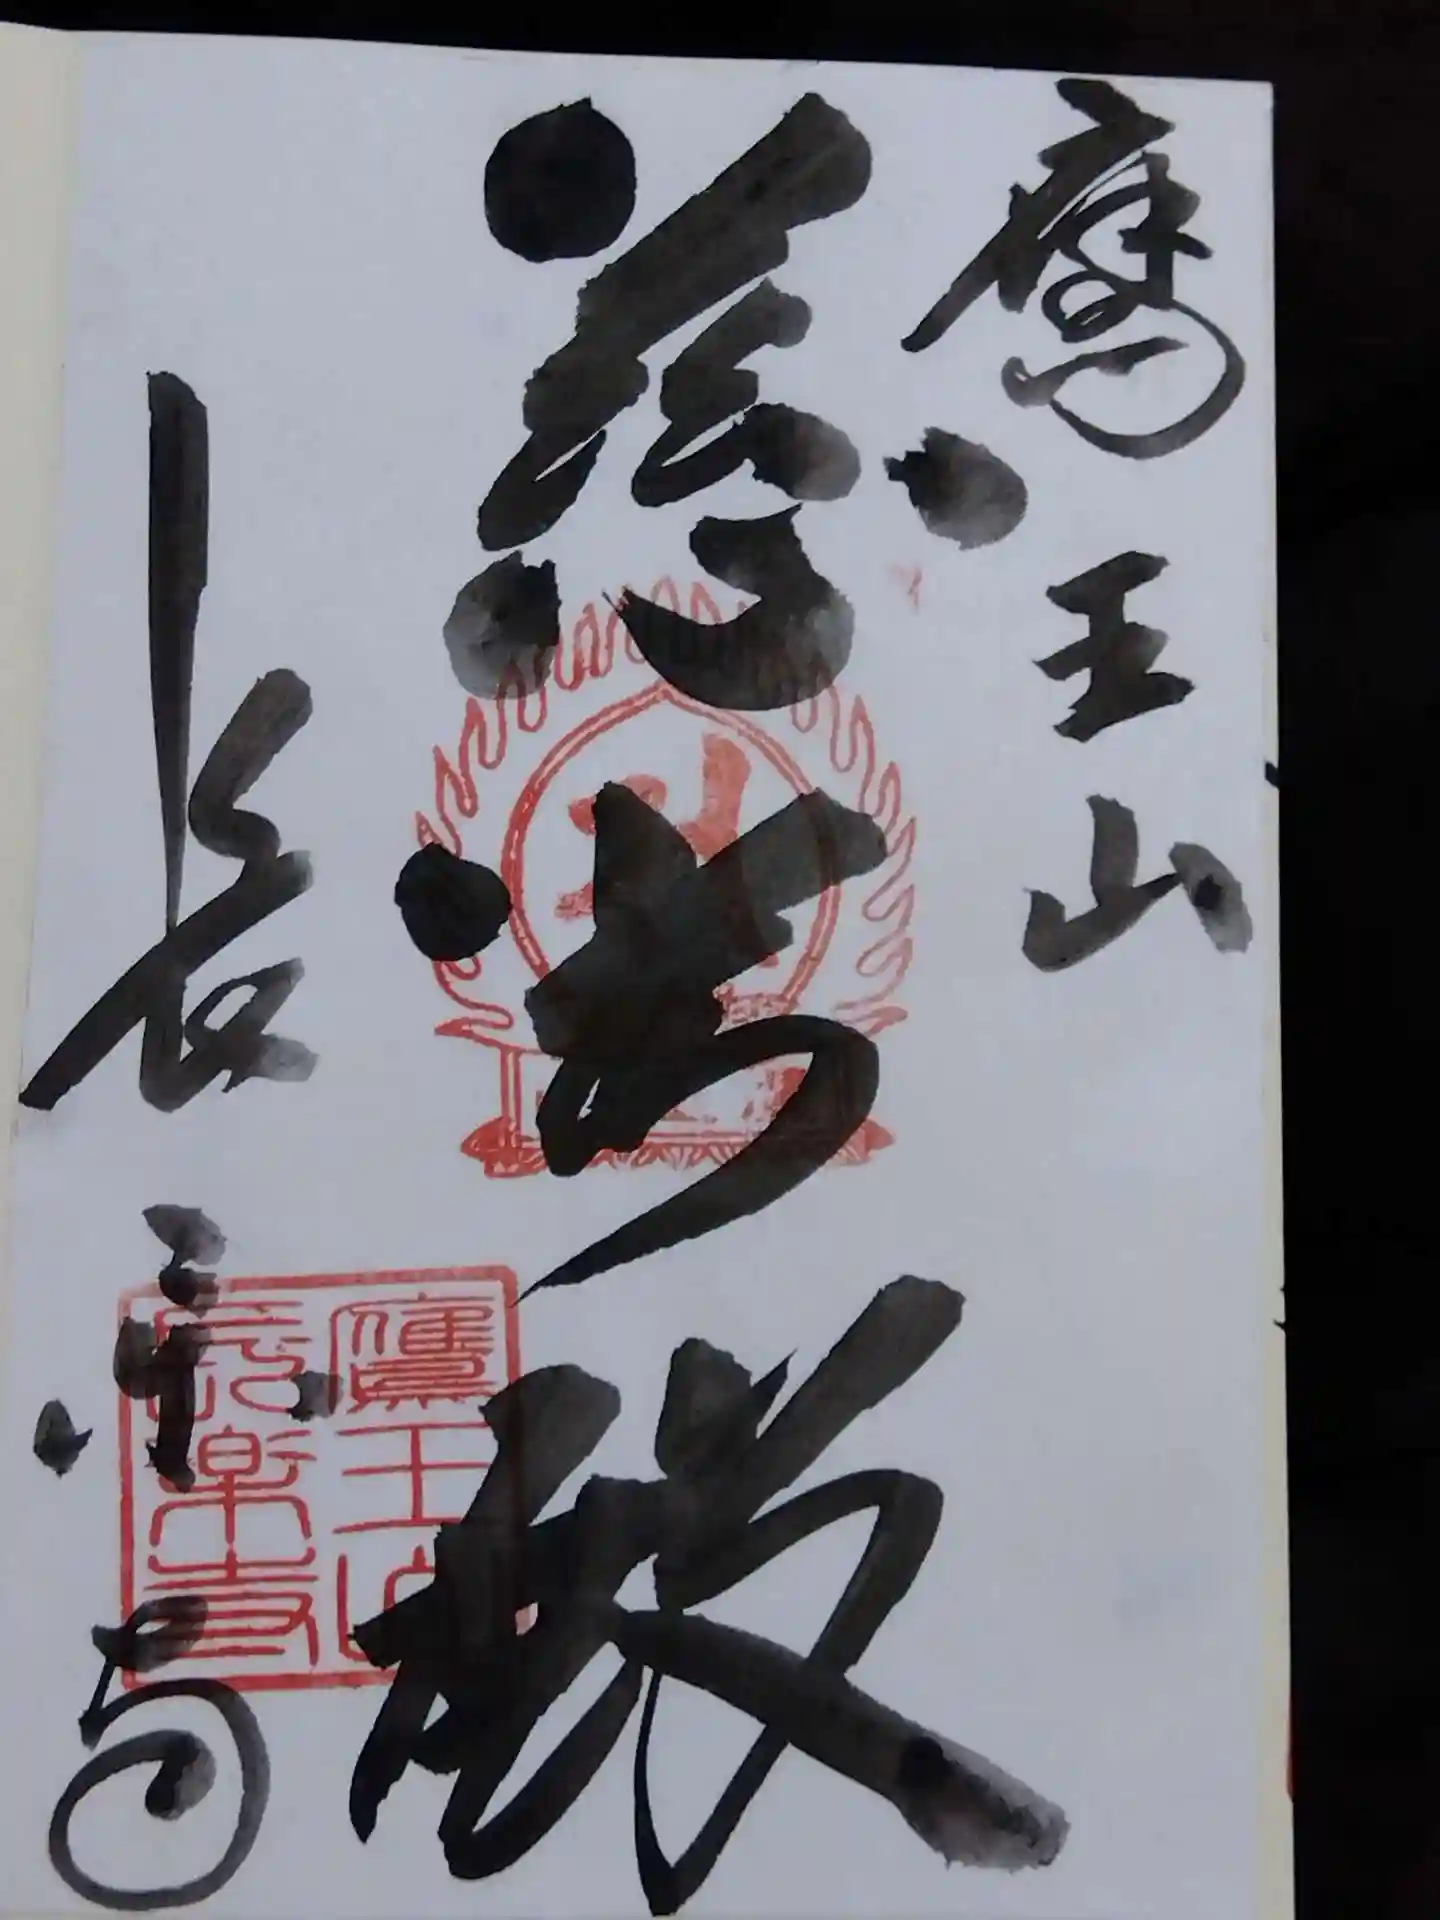 鷹王山
慈悲殿
長楽寺
鷹王山
長楽寺